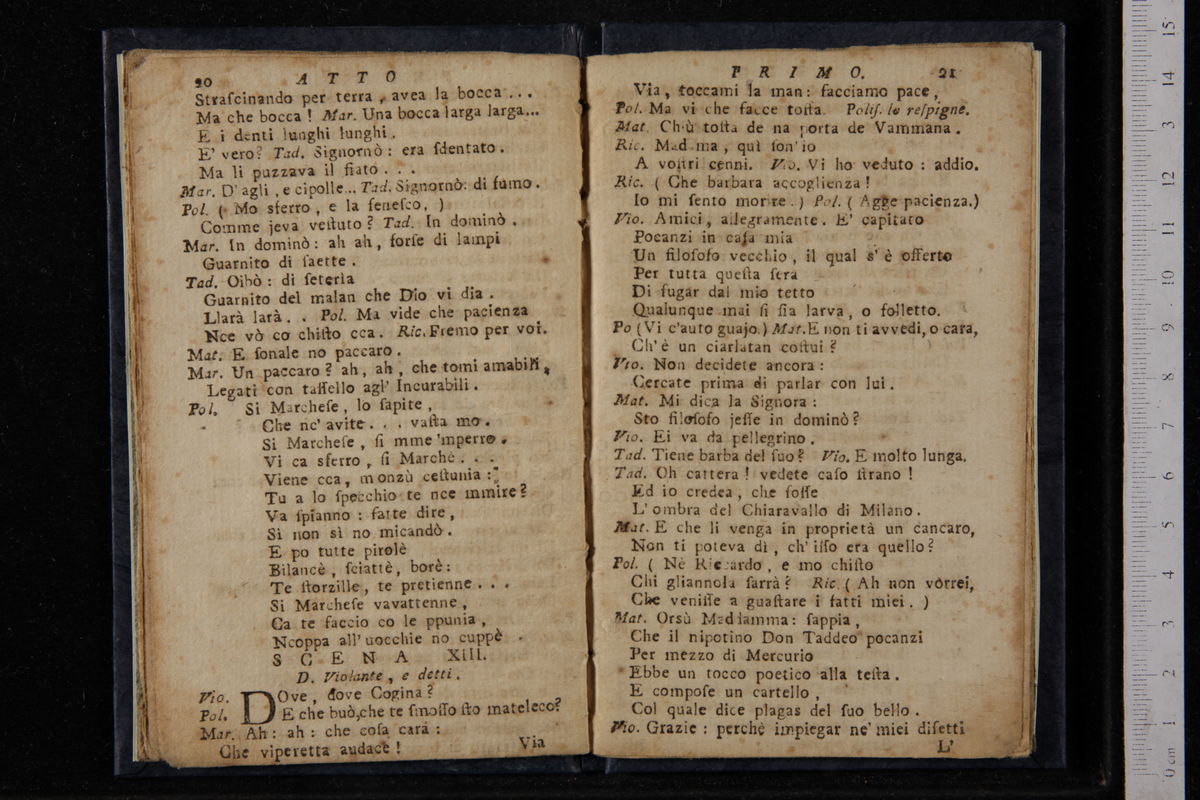 20 ATTO
Straſcinando per terra, avea la bocca ...
Ma che bocca ! Mar. Una bocca larga larga...
E i denti lunghi lunghi.
E' vero? Tad. Signornò : era ſdentato.
Ma li puzzava il fiato . . .
Mar. D'agli, e cipolle... Tad. Signornò: di fumo.
Pol. ( Mo sferro, e la feneſco. )
Comme jeva veſtuto ? Tad. In dominò .
Mar. In dominò : ah ah, forſe di lampi
Guarnito di ſaette .
Tad. Oibò : di ſeteria
Guarnito del malan che Dio vi dia .
Llarà larà . . Pol. Ma vide che pacienza
Nce vò co chiſto cca. Ric. Fremo per voi.
Mat. E ſonale no paccaro .
Mar. Un paccaro ? ah, ah, che tomi amabili,
Legati con taſſello agl' Incurabili .
Pol. Si Marcheſe, lo ſapite,
Che nc' avite . . . vaſta mo.
Si Marcheſe, ſi mme 'mperro.
Vi ca sferro, ſi Marchè . . .
Viene cca, monzù ceſtunia :
Tu a lo ſpecchio te nce mmire?
Va ſpianno : fatte dire,
Si non sì no micandò .
E po tutte pirolè
Bilancè, ſciattè, borè :
Te ſtorzille, te pretienne . . .
Si Marcheſe vavattenne,
Ca te faccio co le ppunia,
Ncoppa all' uocchie no cuppè .
SCENA XIII.
D. Violante, e detti .
Vio. DOve, dove Cogina ?
Pol. E che buò, che te ſmoſſo ſto mateleco?
Mar. Ah : ah : che coſa cara :
Che viperetta audace !
Via
PRIMO. 21
Via, toccami la man : facciamo pace,
Pol. Ma vi che facce toſta. Poliſ. lo reſpigne.
Mat. Chiù toſta de na porta de Vammana .
Ric. Madama, quì ſon' io
A voſtri cenni. Vio. Vi ho veduto : addio.
Ric. ( Che barbara accoglienza !
Io mi ſento morire . ) Pol. ( Agge pacienza.)
Vio. Amici, allegramente . E' capitato
Pocanzi in caſa mia
Un filoſofo vecchio, il qual s' è offerto
Per tutta queſta ſera
Di fugar dal mio tetto
Qualunque mai ſi ſia larva, o folletto.
Po (Vi c'auto guajo.) Mat. E non ti avvedi, o cara,
Ch' è un ciarlatan coſtui ?
Vio. Non decidete ancora :
Cercate prima di parlar con lui .
Mat. Mi dica la Signora :
Sto filoſofo jeſſe in dominò ?
Vio. Ei va da pellegrino .
Tad. Tiene barba del ſuo ? Vio. E molto lunga.
Tad. Oh cattera ! vedete caſo ſtrano !
Ed io credea, che foſſe
L' ombra del Chiaravallo di Milano .
Mat. E che li venga in proprietà un cancaro,
Non ti poteva dì, ch' iſſo era quello ?
Pol. ( Nè Riccardo, e mo chiſto
Chi gliannola ſarrà ? Ric. ( Ah non vorrei,
Che veniſſe a guaſtare i fatti miei . )
Mat. Orsù Madiamma : ſappia,
Che il nipotino Don Taddeo pocanzi
Per mezzo di Mercurio
Ebbe un tocco poetico alla teſta .
E compoſe un cartello,
Col quale dice plagas del ſuo bello .
Vio. Grazie : perchè impiegar ne' miei difetti
L'